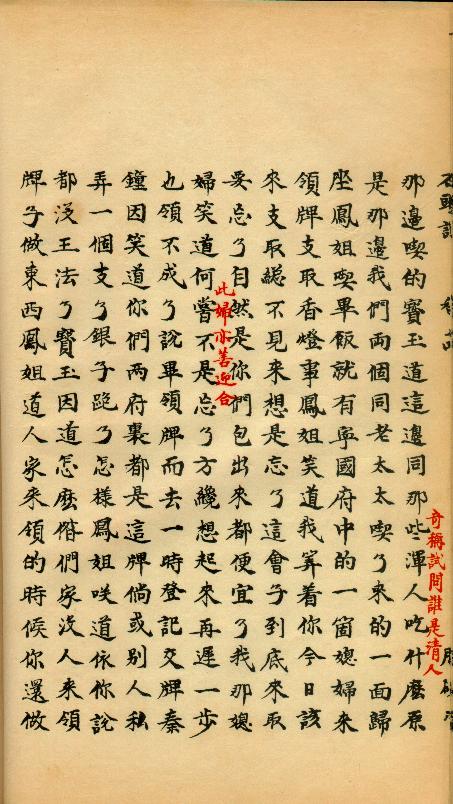 那邊喫的寳玉道這邊同那些渾人吃什麽原
奇稱試問誰是清人
是那邊我們兩個同老太太喫了來的一面歸
座鳳姐喫畢飯就有寧國府中的一箇媳婦來
領牌支取香燈事鳳姐笑道我筭着你今日該
來支取緫不見來想是忘了這會子到底來取
要忘了自然是你們包出來都便宜了我那媳
此婦亦善迎合
婦笑道何嘗不是忘了方纔想起來再遲一步
也領不成了說畢領牌而去一時登記交牌秦
鐘因笑道你們兩府裏都是這牌倘或别人私
弄一個支了銀子跑了怎樣鳳姐咲道依你說
都没王法了寳玉因道怎麽偺們家没人來領
牌子做東西鳳姐道人家來領的時候你還做